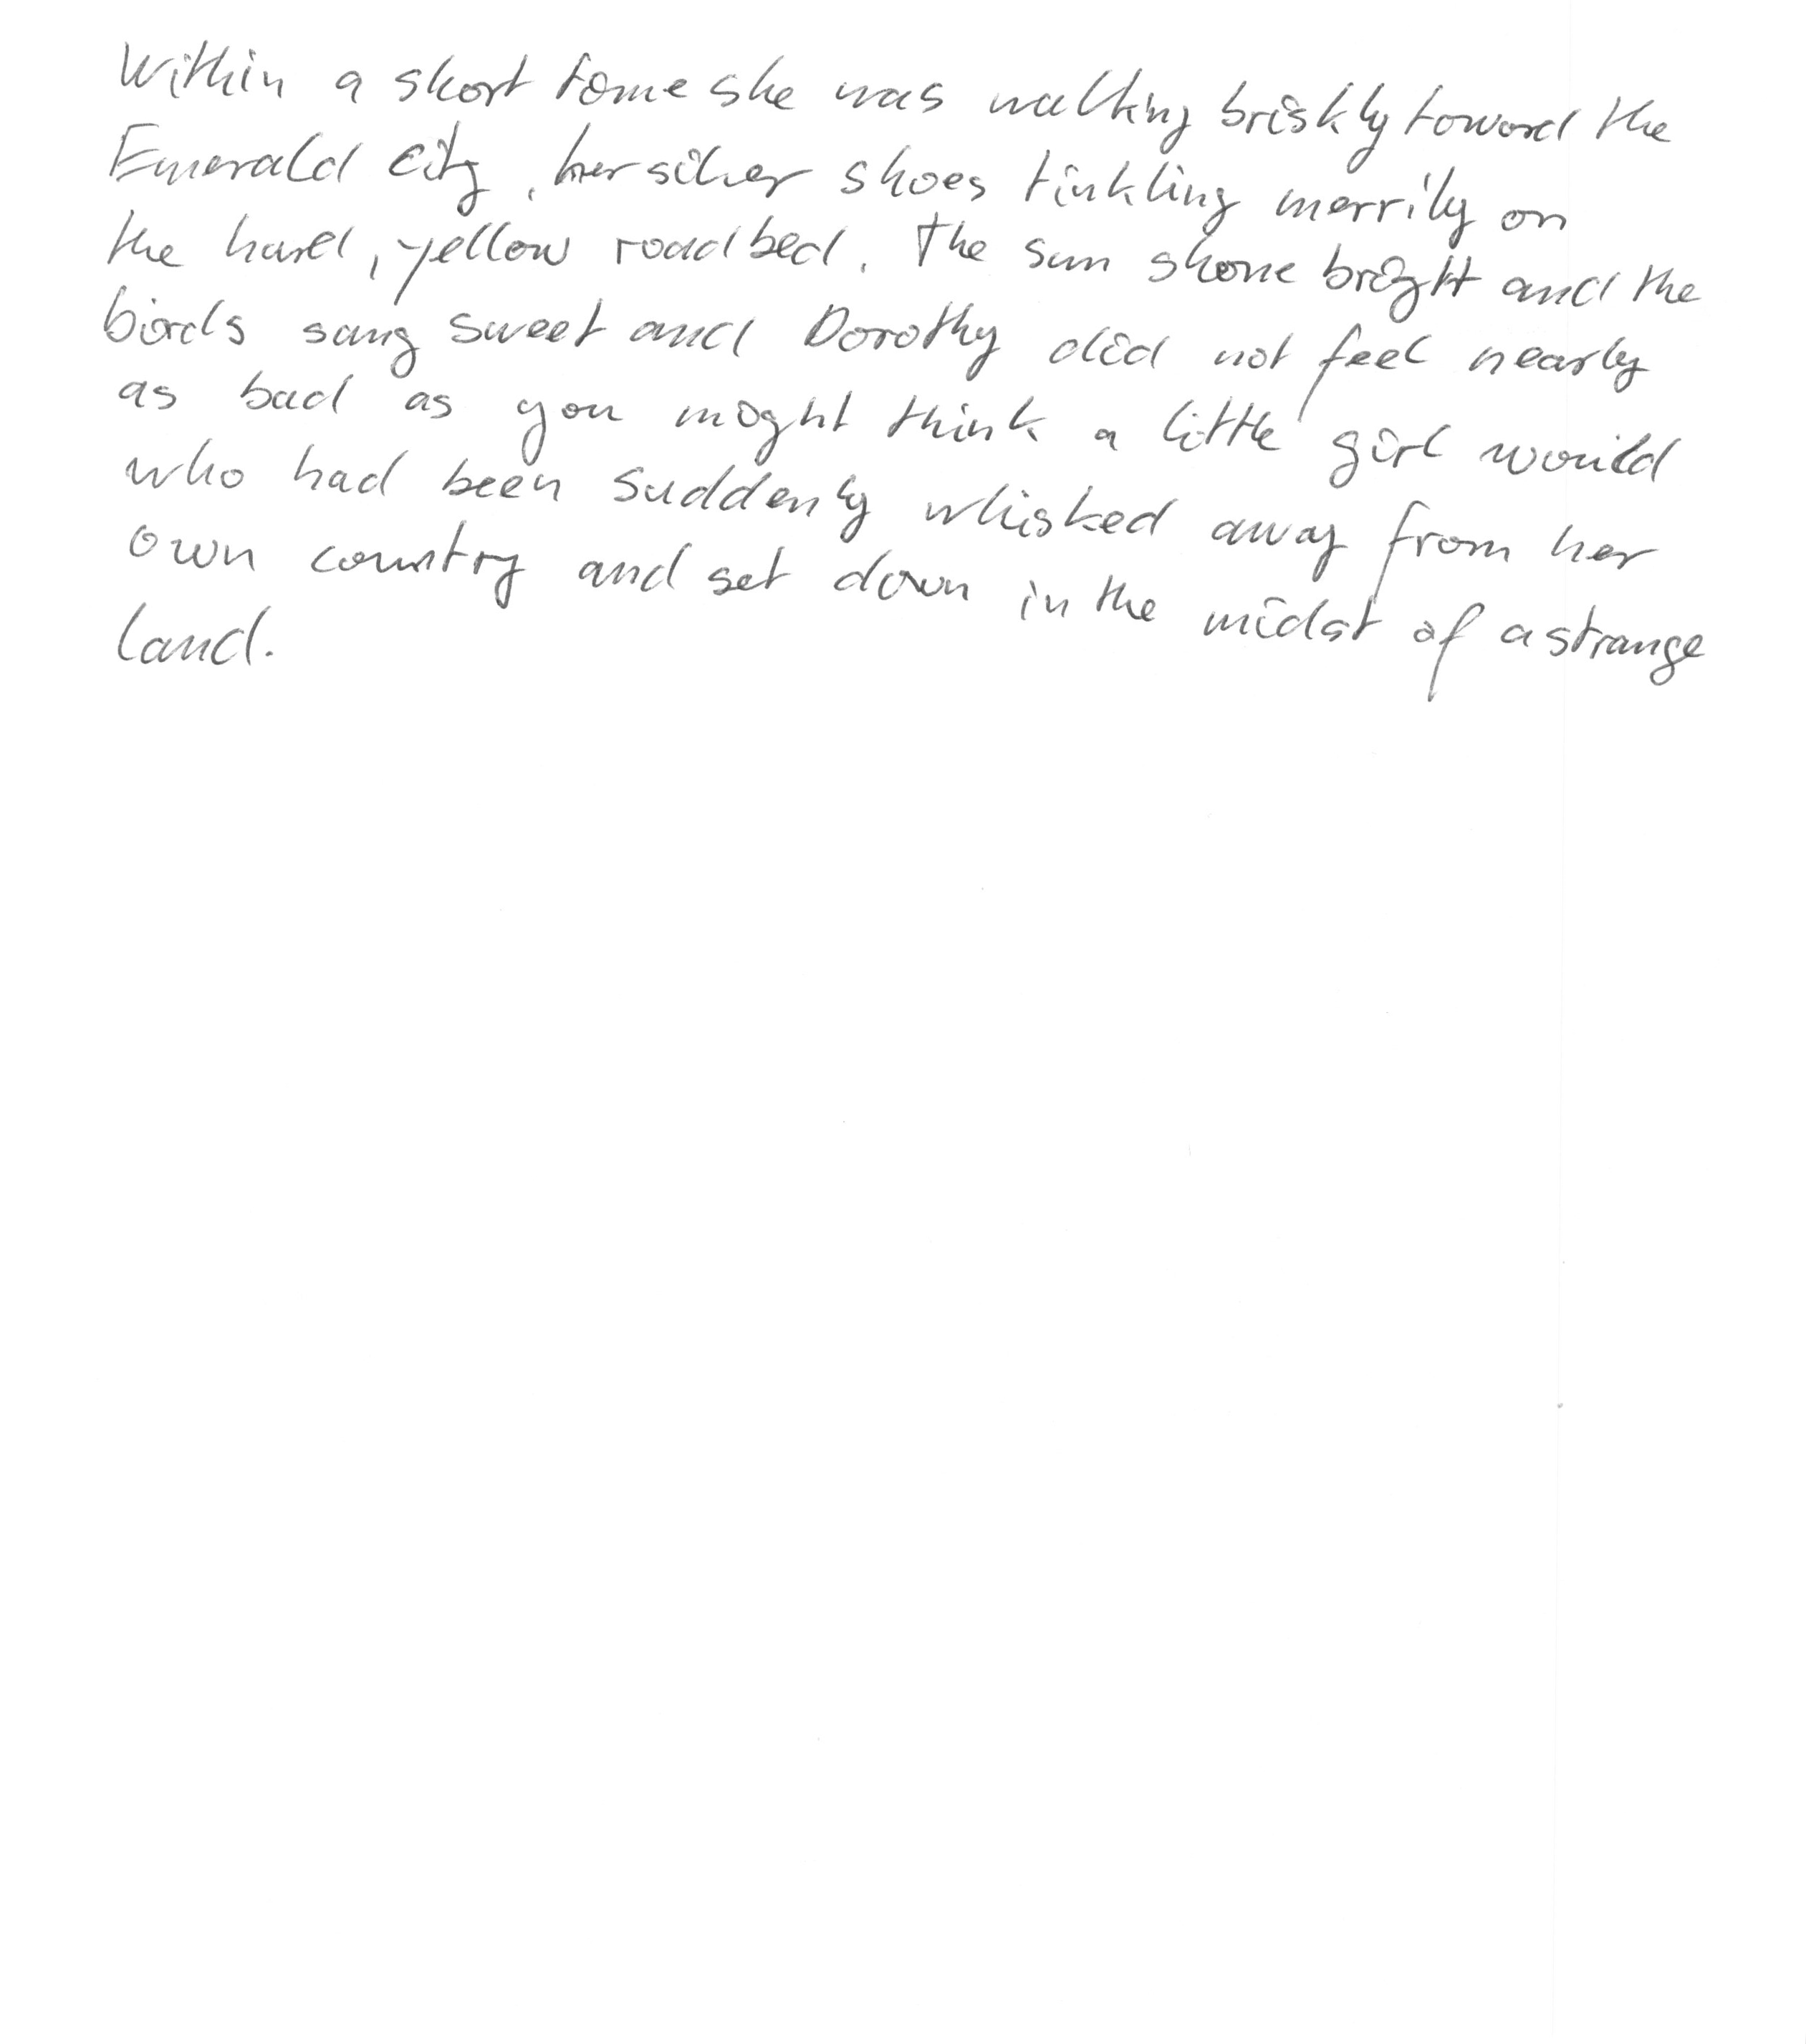 Within a short time she was walking briskly toward the
Emerald City, her silver shoes tinkling merrily on
the hard, yellow roadbed. The sun shone bright and the
birds sang sweet and Dorothy did not feel nearly
as bad as you might think a little girl would
who had been suddenly whisked away from her
own country and set down in the midst of a strange
land.